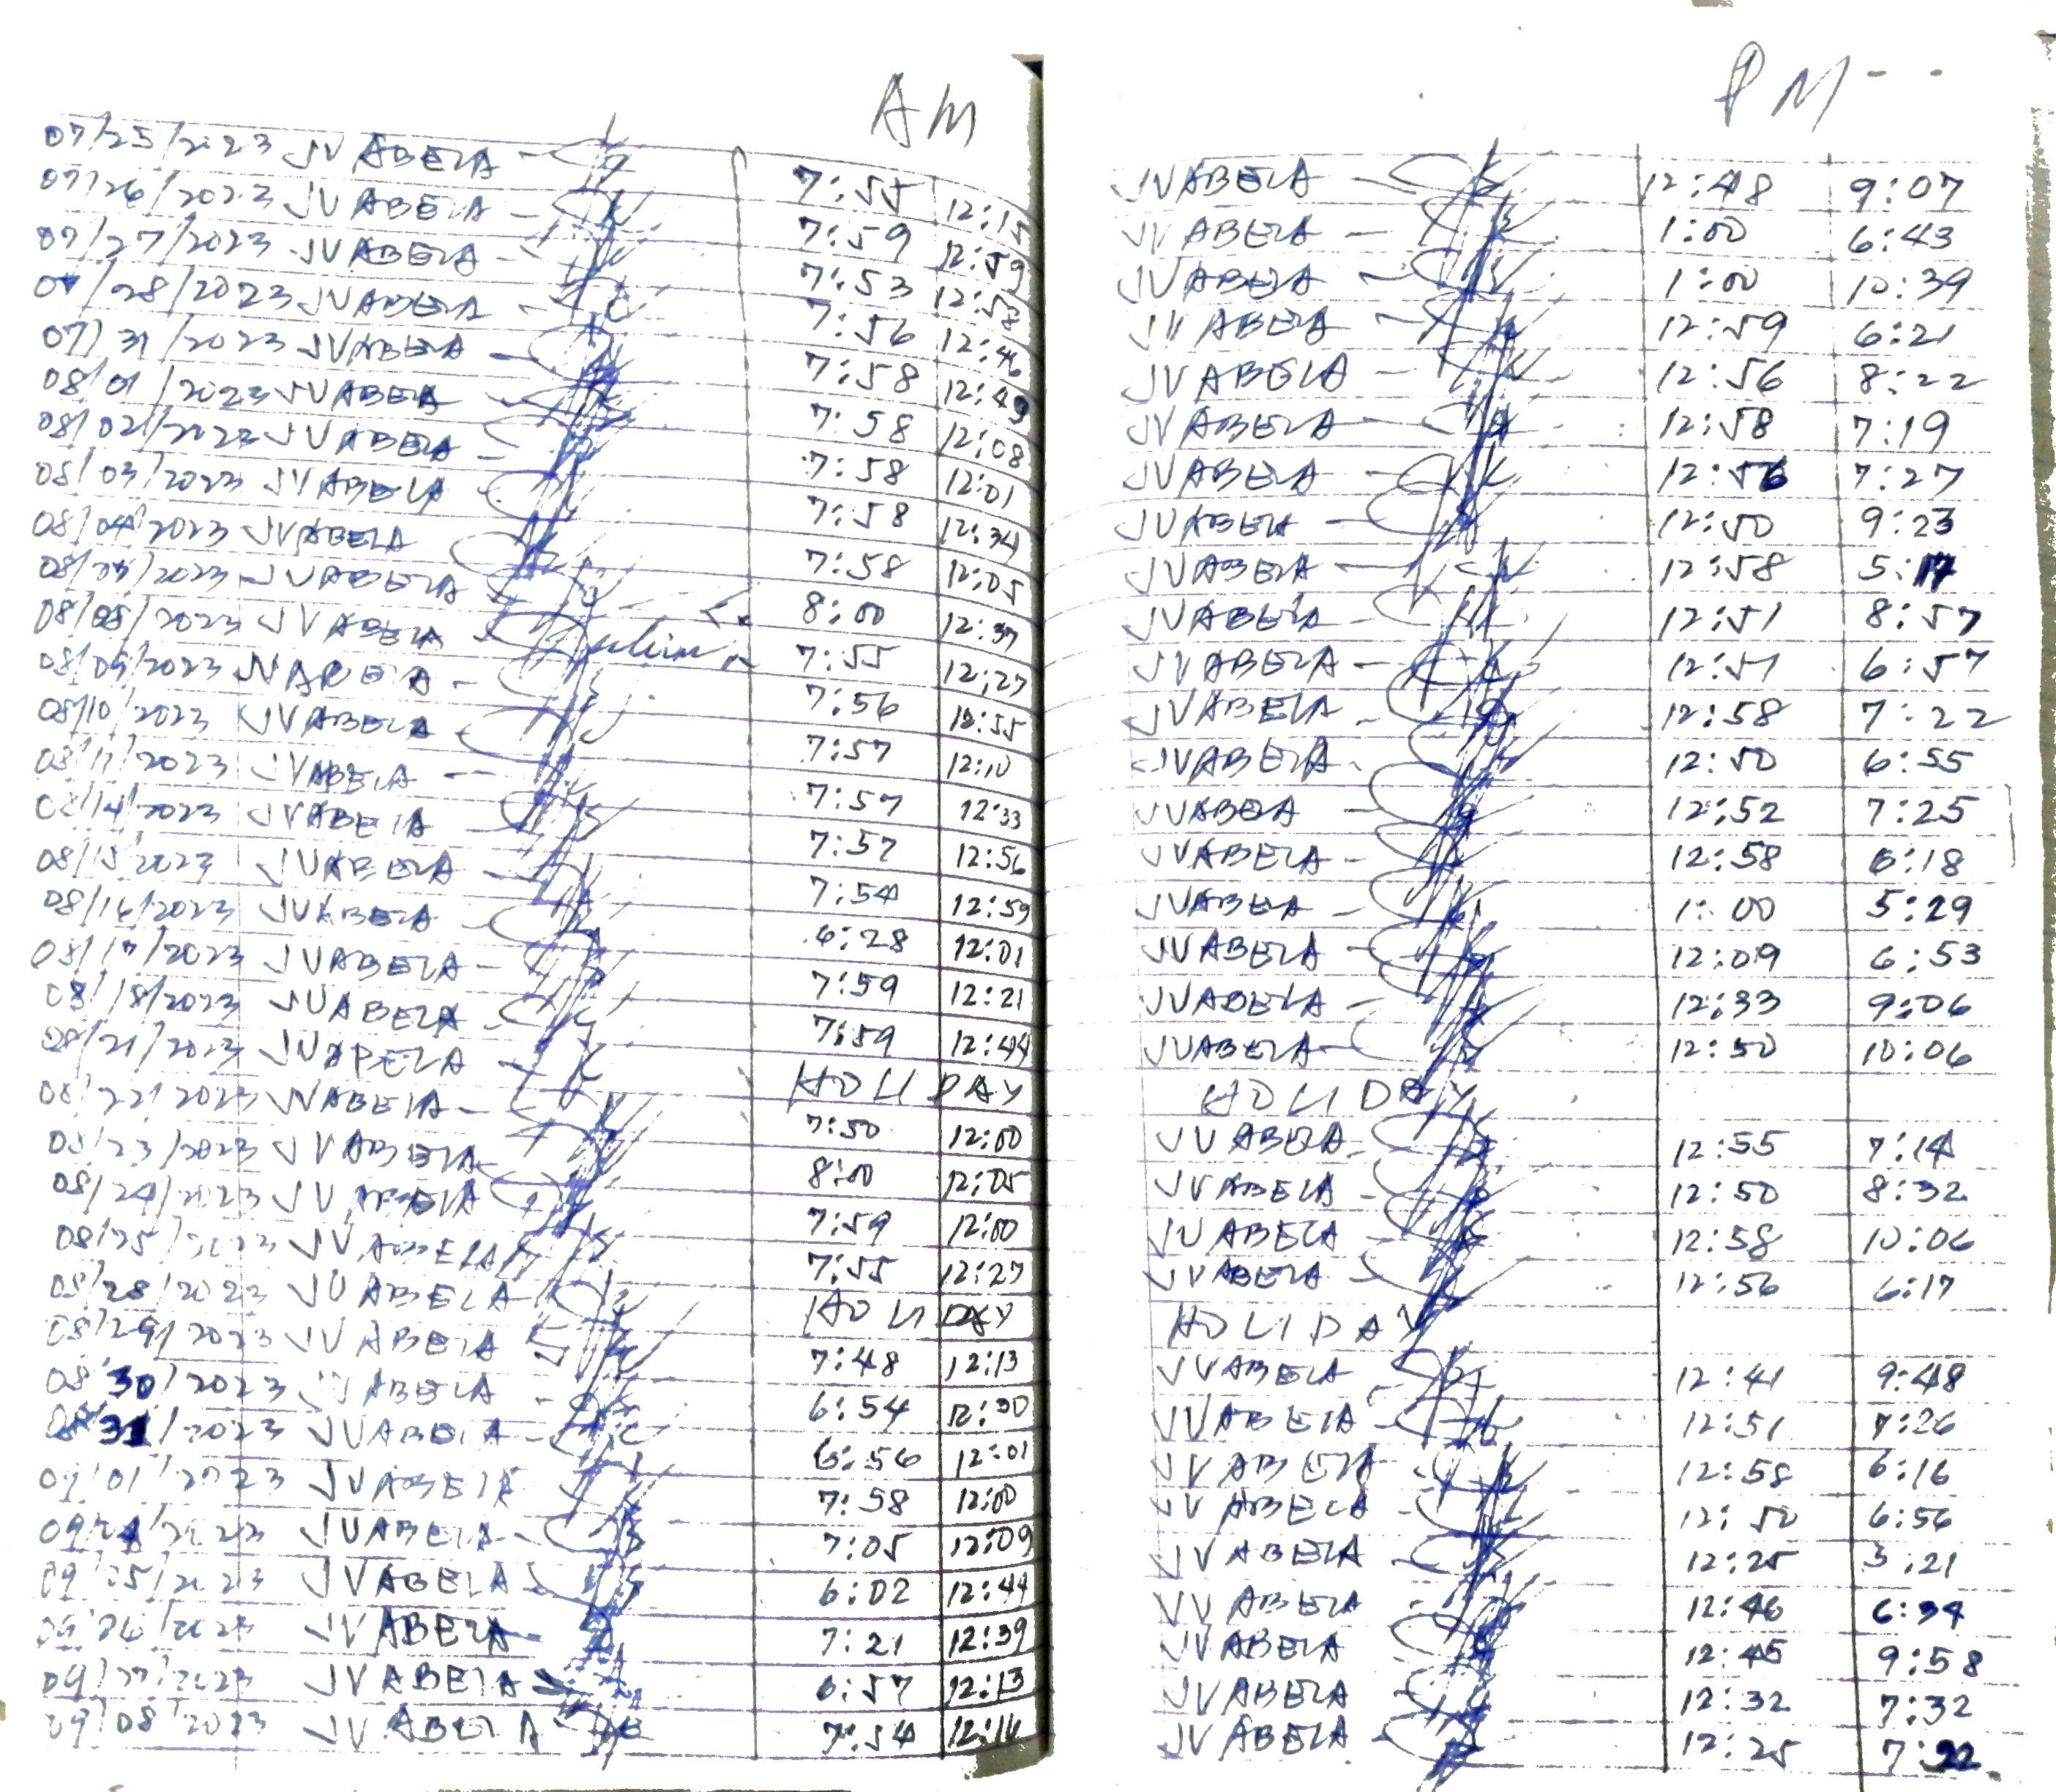 AM
07/25/2023 JV ABELA 7:55 12:15
07/26/2023 JV ABELA 7:59 12:59
07/27/2023 JV ABELA 7:53 12:58
07/28/2023 JV ABELA 7:56 12:46
07/31/2023 JV ABELA 7:58 12:49
08/01/2023 JV ABELA 7:58 12:08
08/02/2023 JV ABELA 7:58 12:01
08/03/2023 JV ABELA 7:58 12:34
08/04/2023 JV ABELA 7:58 12:05
08/07/2023 JV ABELA 8:00 12:37
08/08/2023 JV ABELA 7:55 12:27
08/09/2023 JV ABELA 7:56 12:55
08/10/2023 JV ABELA 7:57 12:10
08/11/2023 JV ABELA 7:57 12:33
08/14/2023 JV ABELA 7:57 12:56
08/15/2023 JV ABELA 7:54 12:59
08/16/2023 JV ABELA 6:28 12:01
08/17/2023 JV ABELA 7:59 12:21
08/18/2023 JV ABELA 7:59 12:44
08/21/2023 JV ABELA HOLIDAY
08/22/2023 JV ABELA 7:50 12:00
08/23/2023 JV ABELA 8:00 12:05
08/24/2023 JV ABELA 7:59 12:00
08/25/2023 JV ABELA 7:55 12:27
08/28/2023 JV ABELA HOLIDAY
08/29/2023 JV ABELA 7:48 12:13
08/30/2023 JV ABELA 6:54 12:30
08/31/2023 JV ABELA 6:56 12:01
09/01/2023 JV ABELA 7:58 12:00
09/04/2023 JV ABELA 7:05 12:09
09/05/2023 JV ABELA 6:02 12:44
09/06/2023 JV ABELA 7:21 12:39
09/07/2023 JV ABELA 6:57 12:13
09/08/2023 JV ABELA 7:54 12:16
PM
JV ABELA 12:48 9:07
JV ABELA 1:00 6:43
JV ABELA 1:00 10:39
JV ABELA 12:59 6:21
JV ABELA 12:56 8:22
JV ABELA 12:58 7:19
JV ABELA 12:56 7:27
JV ABELA 12:50 9:23
JV ABELA 12:58 5:17
JV ABELA 12:51 8:57
JV ABELA 12:51 6:57
JV ABELA 12:58 7:22
JV ABELA 12:50 6:55
JV ABELA 12:52 7:25
JV ABELA 12:58 6:18
JV ABELA 1:00 5:29
JV ABELA 12:09 6:53
JV ABELA 12:33 9:06
JV ABELA 12:50 10:06
HOLIDAY
JV ABELA 12:55 7:14
JV ABELA 12:50 8:32
JV ABELA 12:58 10:06
JV ABELA 12:56 6:17
HOLIDAY
JV ABELA 12:41 9:48
JV ABELA 12:51 7:26
JV ABELA 12:58 6:16
JV ABELA 12:50 6:56
JV ABELA 12:25 5:21
JV ABELA 12:46 6:34
JV ABELA 12:45 9:58
JV ABELA 12:32 7:32
JV ABELA 12:25 7:22